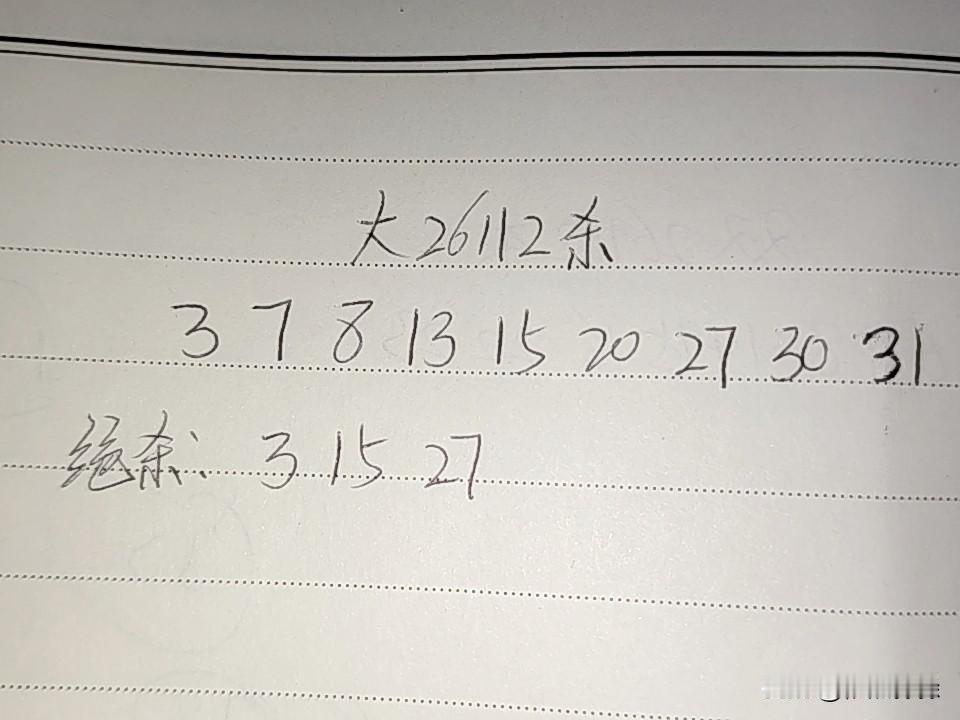 大26112杀
3 7 8 13 15 20 27 30 31
绝杀: 3 15 27